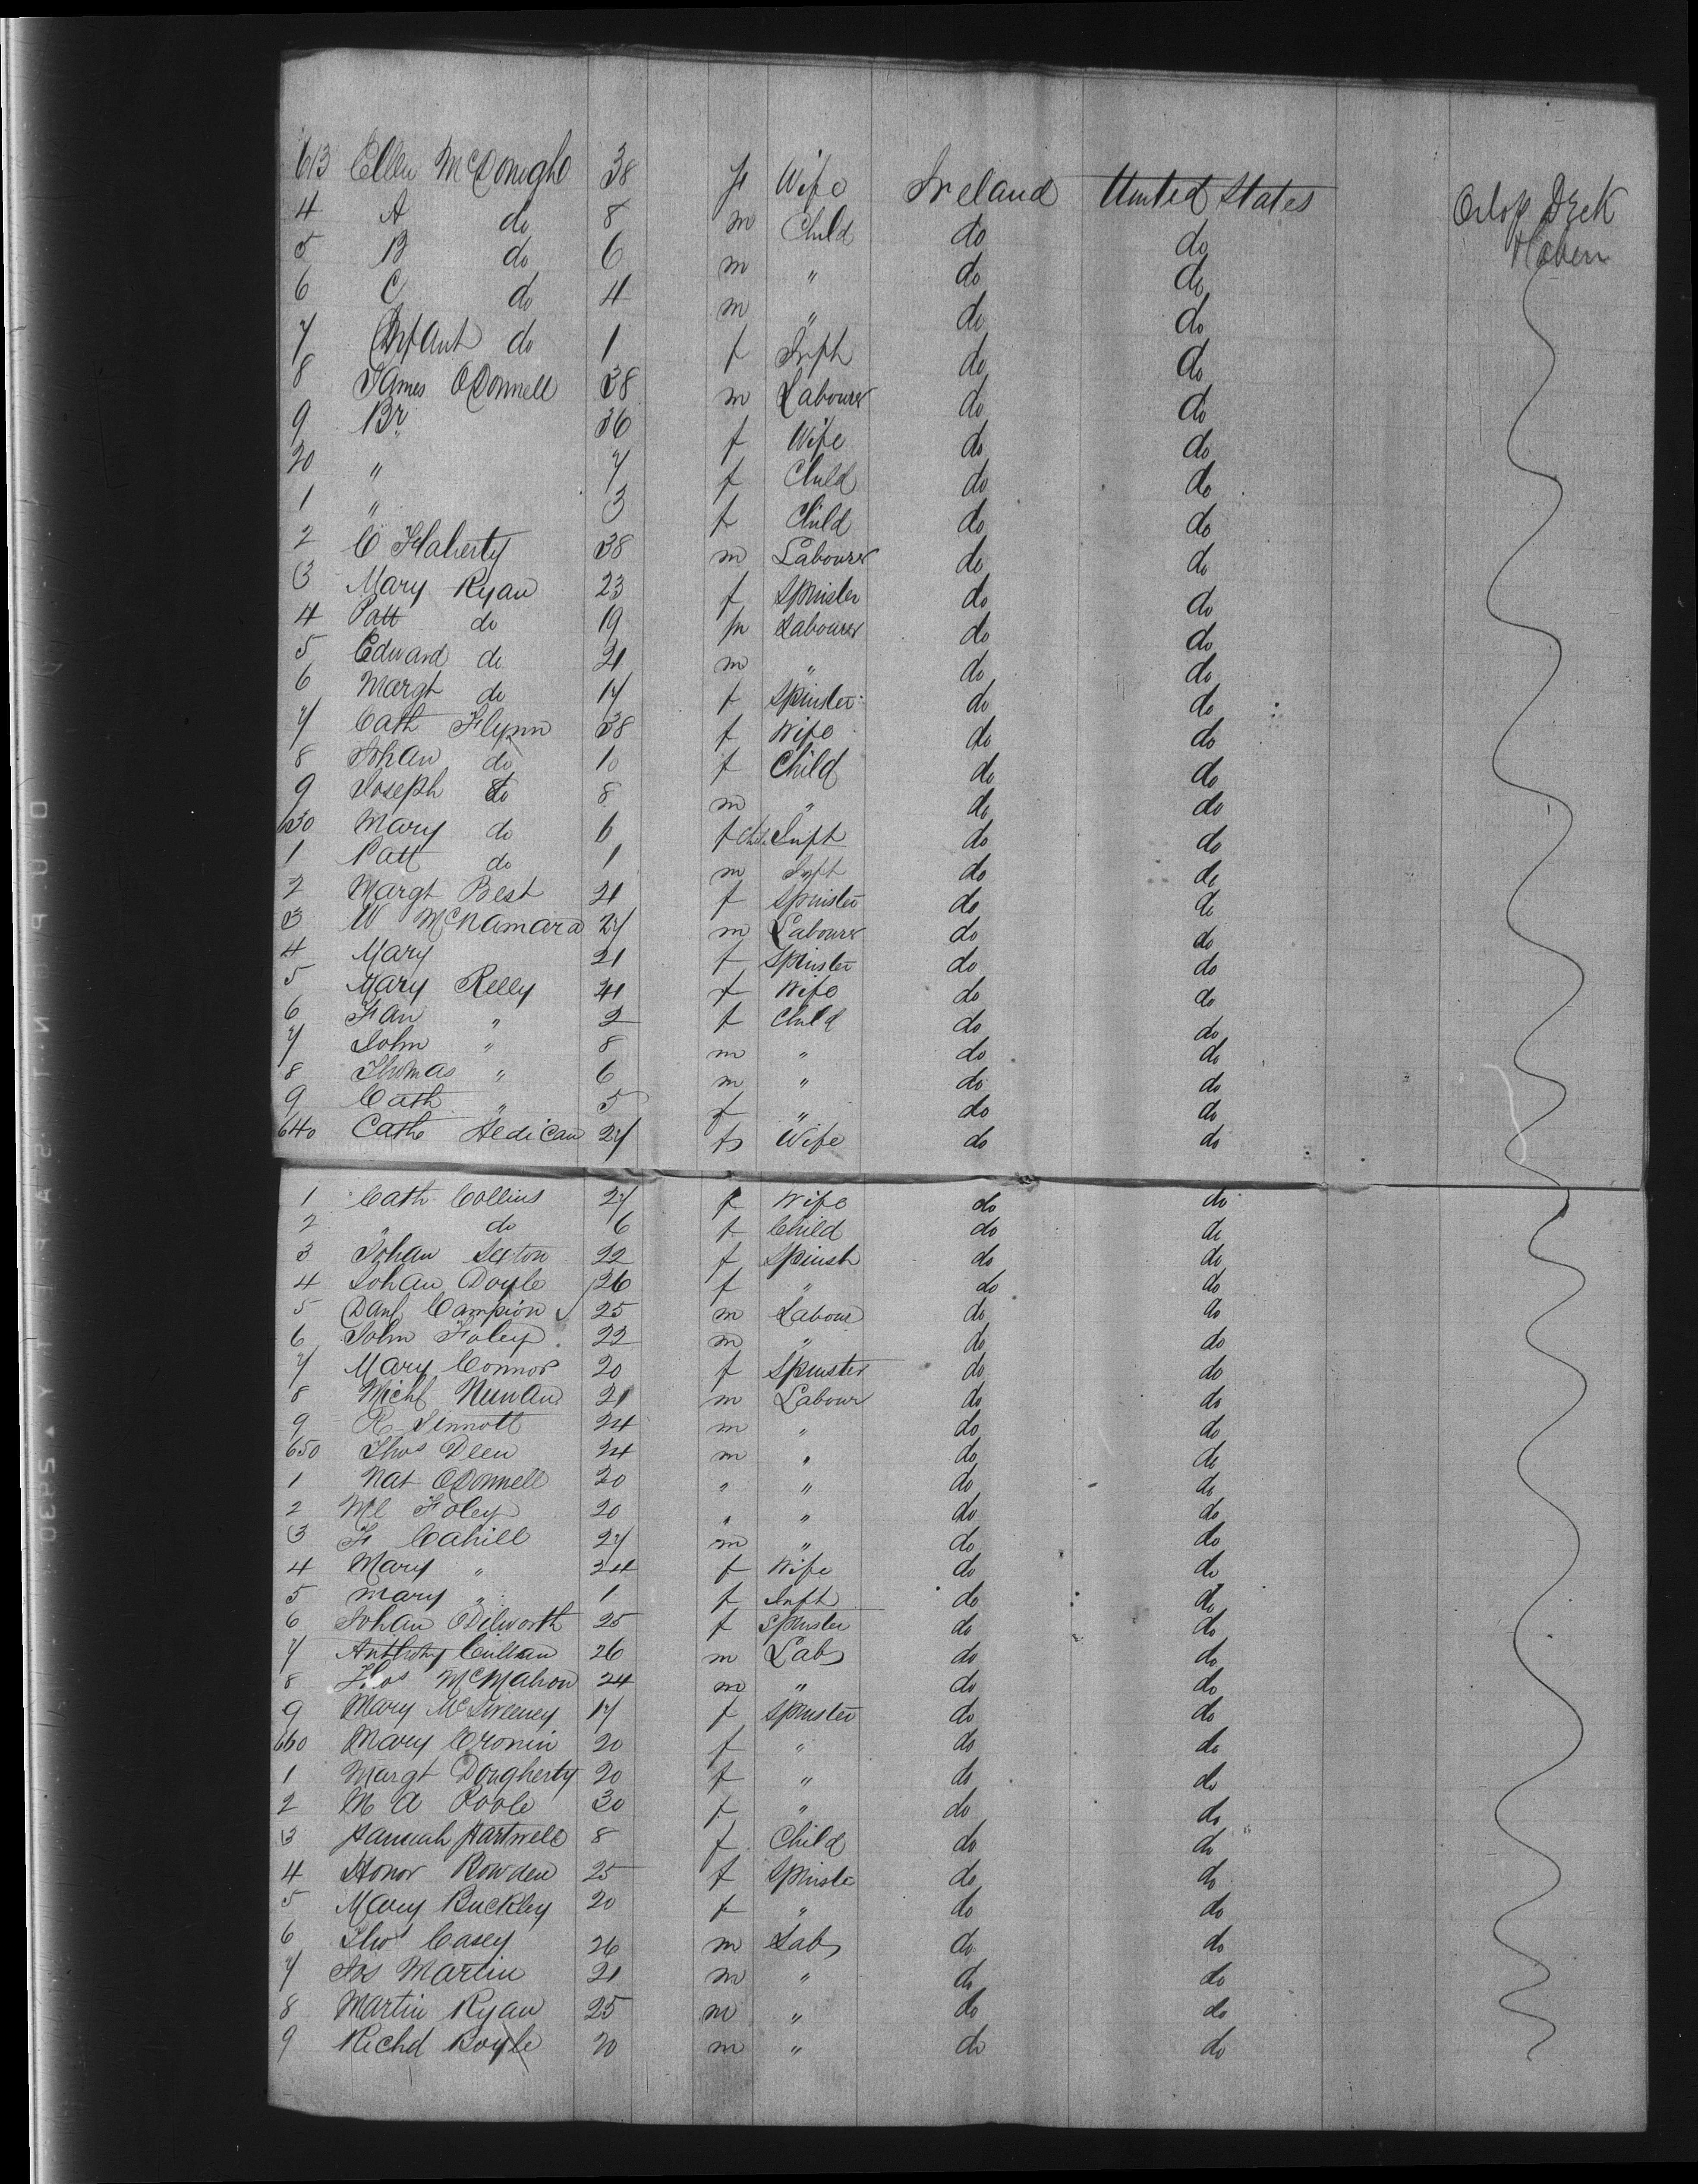 613 Ellen McDonigho 38 f Wife Ireland United States Orlop Deck
4 A do 8 m Child do do
5 B do 6 m " do do
6 C do 4 m " do do
7 Infant do 1 f Infh do do
8 James ODonnell 38 m Labourer do do
9 Br 36 f Wife do do
20 " 7 f Child do do
1 " 3 f Child do do
2 C Flaherty 38 m Labourer do do
3 Mary Ryan 23 f Spinster do do
4 Patt do 19 m Labourer do do
5 Edward do 21 m " do do
6 Margt do 17 f Spinster do do
7 Cath Flynn 38 f Wife do do
8 Johan do 10 f Child do do
9 Joseph do 8 m " do do
630 Mary do 6 f Inft do do
1 Patt do 1 m Inft do do
2 Margt Best 21 f Spinster do do
3 W McNamara 27 m Labourer do do
4 Mary 21 f Spinster do do
5 Mary Kelly 41 f Wife do do
6 Fan " 2 f Child do do
7 John " 8 m " do do
8 Thomas " 6 m " do do
9 Cath " 5 f " do do
640 Cath Hedican 27 f Wife do do
1 Cath Collins 27 f Wife do do
2 " do 6 f Child do do
3 Johan Sexton 22 f Spinstr do do
4 Johan Doyle 26 f " do do
5 Danl Campion 25 m Labour do do
6 John Foley 22 m " do do
7 Mary Connor 20 f Spinster do do
8 Michl Nunan 21 m Labour do do
9 R Sinnott 24 m " do do
650 Thos Deen 24 m " do do
1 Nat ODonnell 20 " " do do
2 Ml Foley 20 " " do do
3 F Cahill 27 m " do do
4 Mary " 24 f Wife do do
5 Mary " 1 f Inft do do
6 Johan Dilworth 25 f Spinster do do
7 Anthony Cullinan 26 m Lab do do
8 Thos McMahon 24 m " do do
9 Mary McSweeney 17 f Spinster do do
660 Mary Cronin 20 f " do do
1 Margt Dougherty 20 f " do do
2 M A Poole 30 f " do do
3 Hannah Hartwell 8 f Child do do
4 Honor Bowden 25 f Spinste do do
5 Mary Buckley 20 f " do do
6 Thos Casey 26 m Lab do do
7 Jos Martin 21 m " do do
8 Martin Ryan 25 m " do do
9 Richd Boyle 20 m " do do